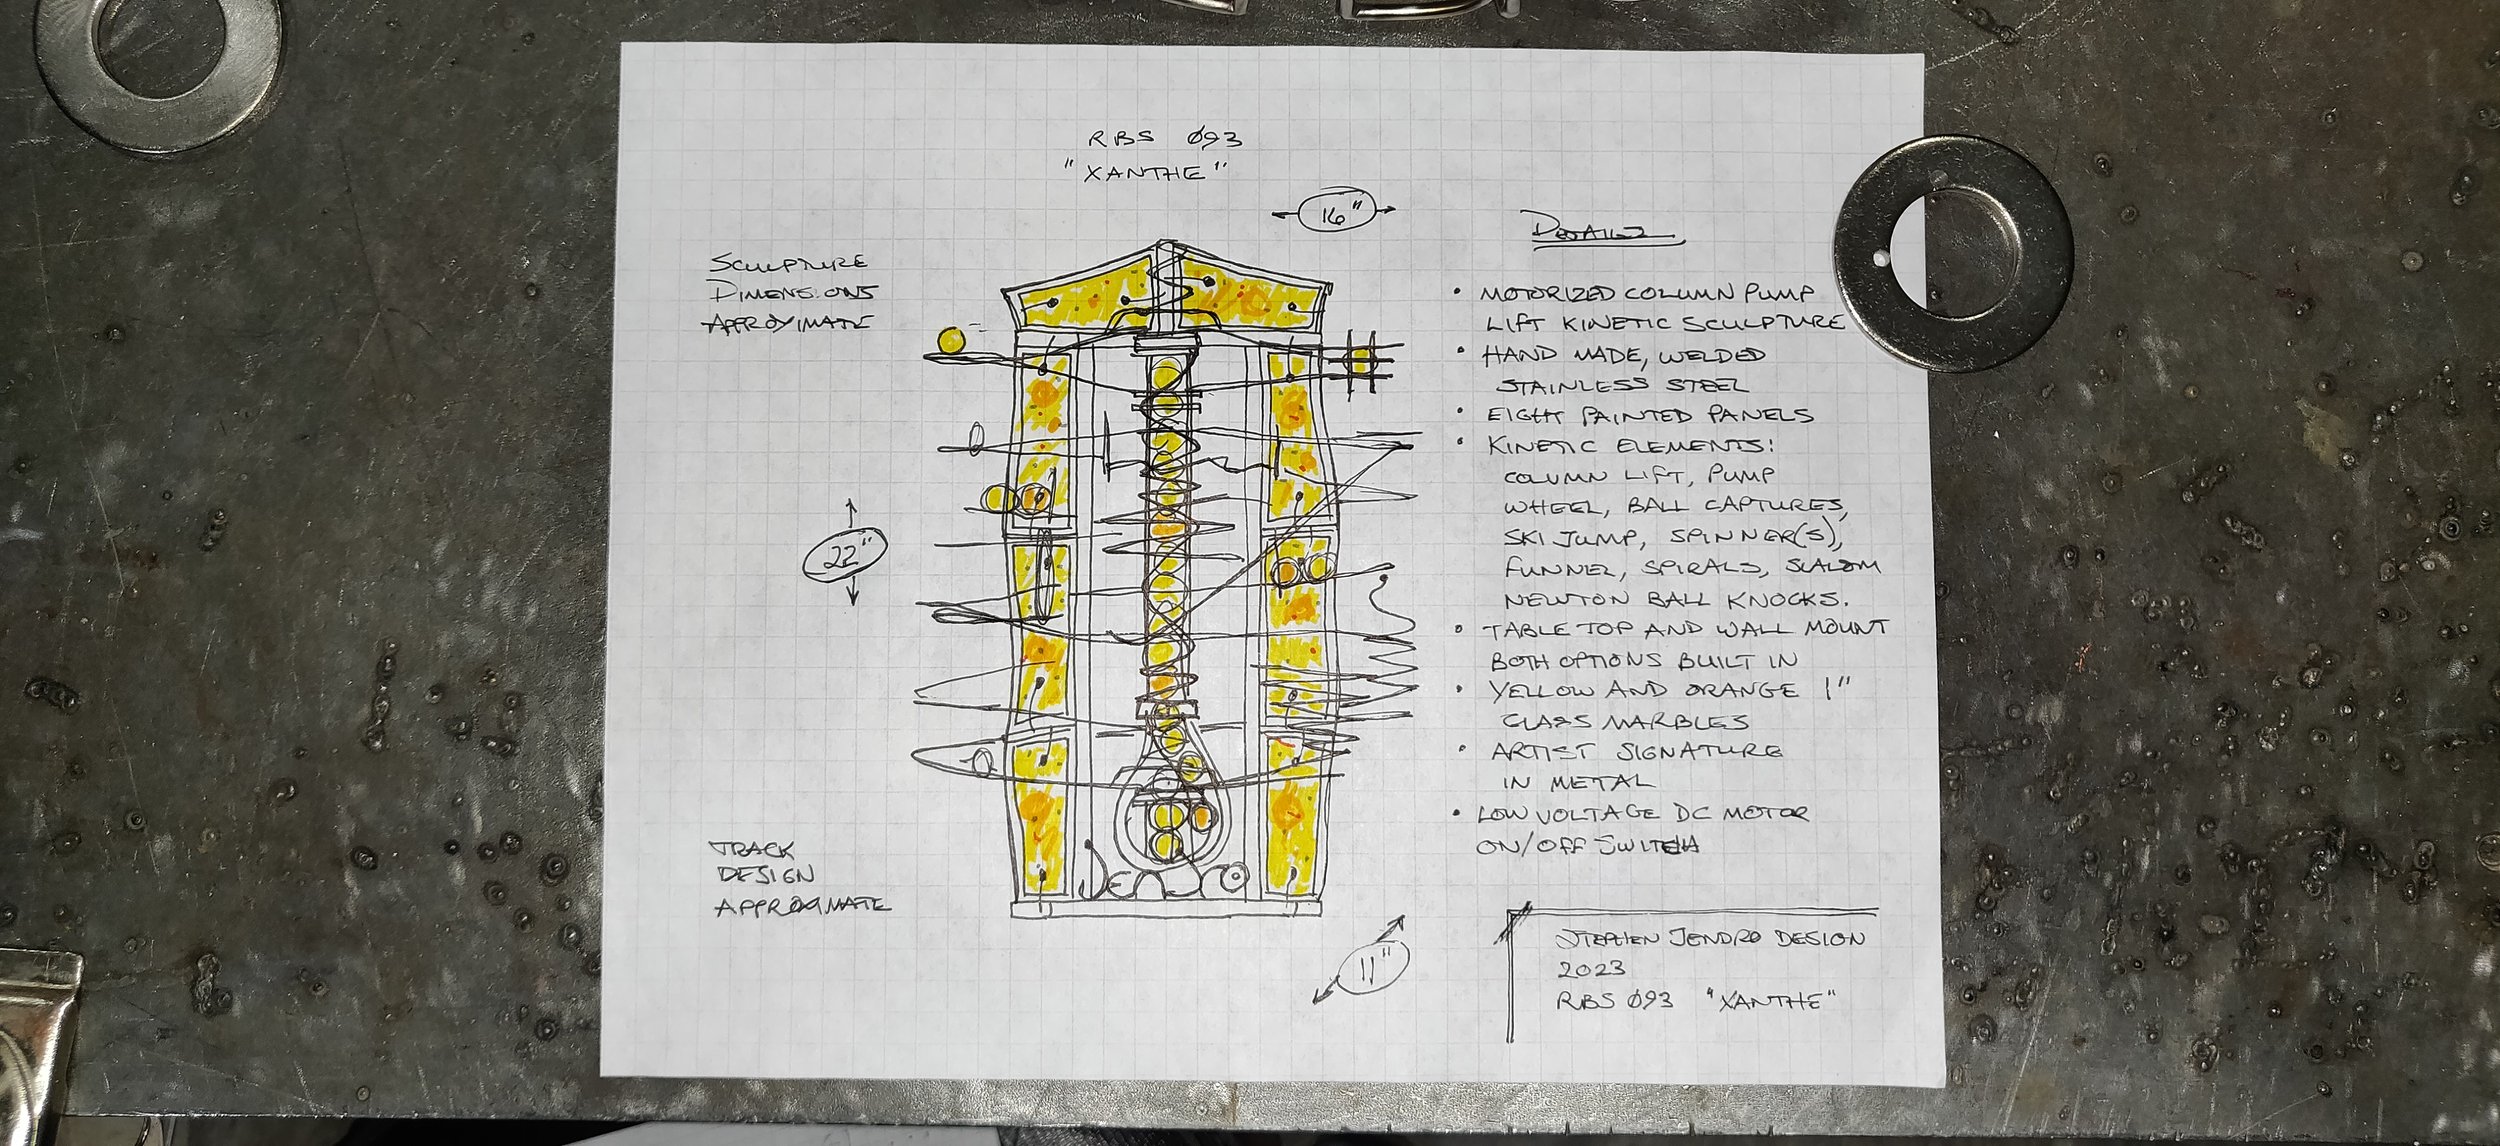 RBS Ø93
"XANTHE"
16"
SCULPTURE
DIMENSIONS
APPROXIMATE
22"
TRACK
DESIGN
APPROXIMATE
JENDRO
11"
DETAILS
• MOTORIZED COLUMN PUMP
LIFT KINETIC SCULPTURE
• HAND MADE, WELDED
STAINLESS STEEL
• EIGHT PAINTED PANELS
• KINETIC ELEMENTS:
COLUMN LIFT, PUMP
WHEEL, BALL CAPTURES,
SKI JUMP, SPINNER(S),
FUNNEL, SPIRALS, SLALOM
NEWTON BALL KNOCKS.
• TABLE TOP AND WALL MOUNT
BOTH OPTIONS BUILT IN
• YELLOW AND ORANGE 1"
GLASS MARBLES
• ARTIST SIGNATURE
IN METAL
• LOW VOLTAGE DC MOTOR
ON/OFF SWITCH
STEPHEN JENDRO DESIGN
2023
RBS Ø93 "XANTHE"